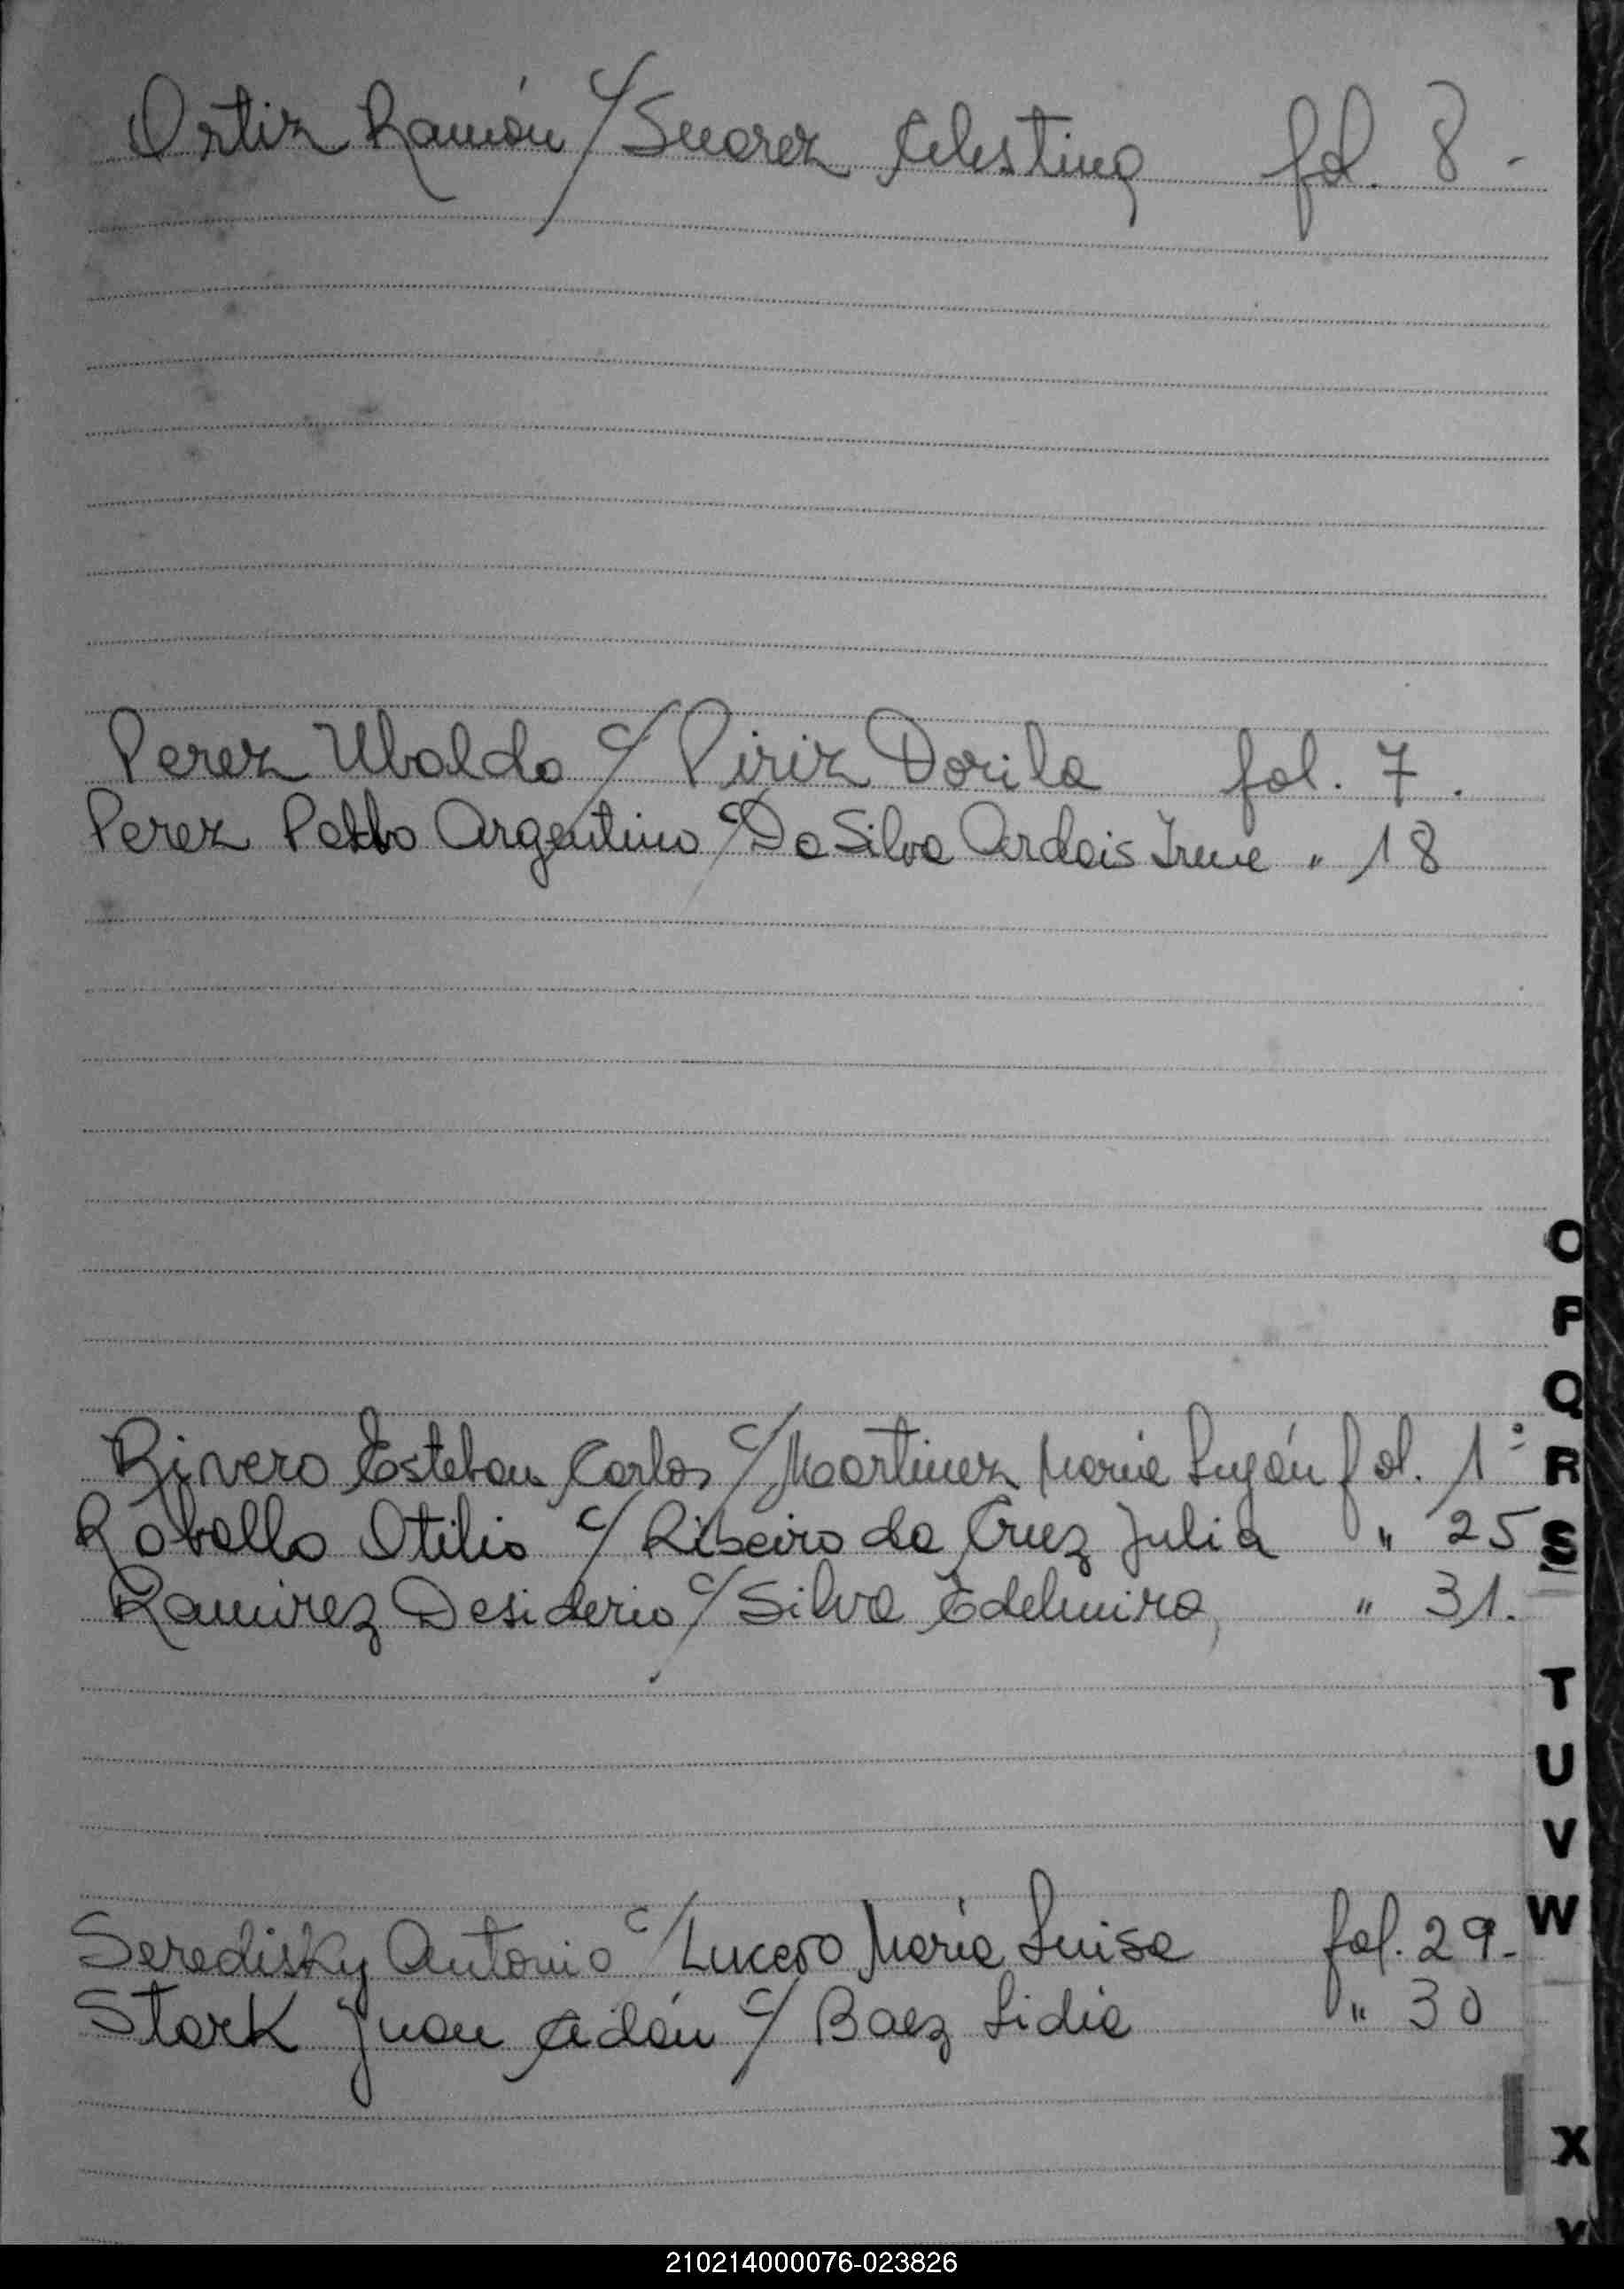 Ortiz Ramón c/ Suarez Celestina fol. 8 -
Perez Ubaldo c/ Piriz Dorila fol. 7.
Perez Pablo Argentino c/ Da Silva Ardais Irene " 18
Rivero Esteban Carlos c/ Martinez Maria Luján fol. 1°
Roballo Otilio c/ Ribeiro da Cruz Julia " 25
Ramirez Desiderio c/ Silva Edelmira " 31.
Seredisky Antonio c/ Lucero María Luisa fol. 29-
Stark Juan Adán c/ Baez Lidia " 30
O
P
Q
R
S
T
U
V
W
X
Y
210214000076-023826